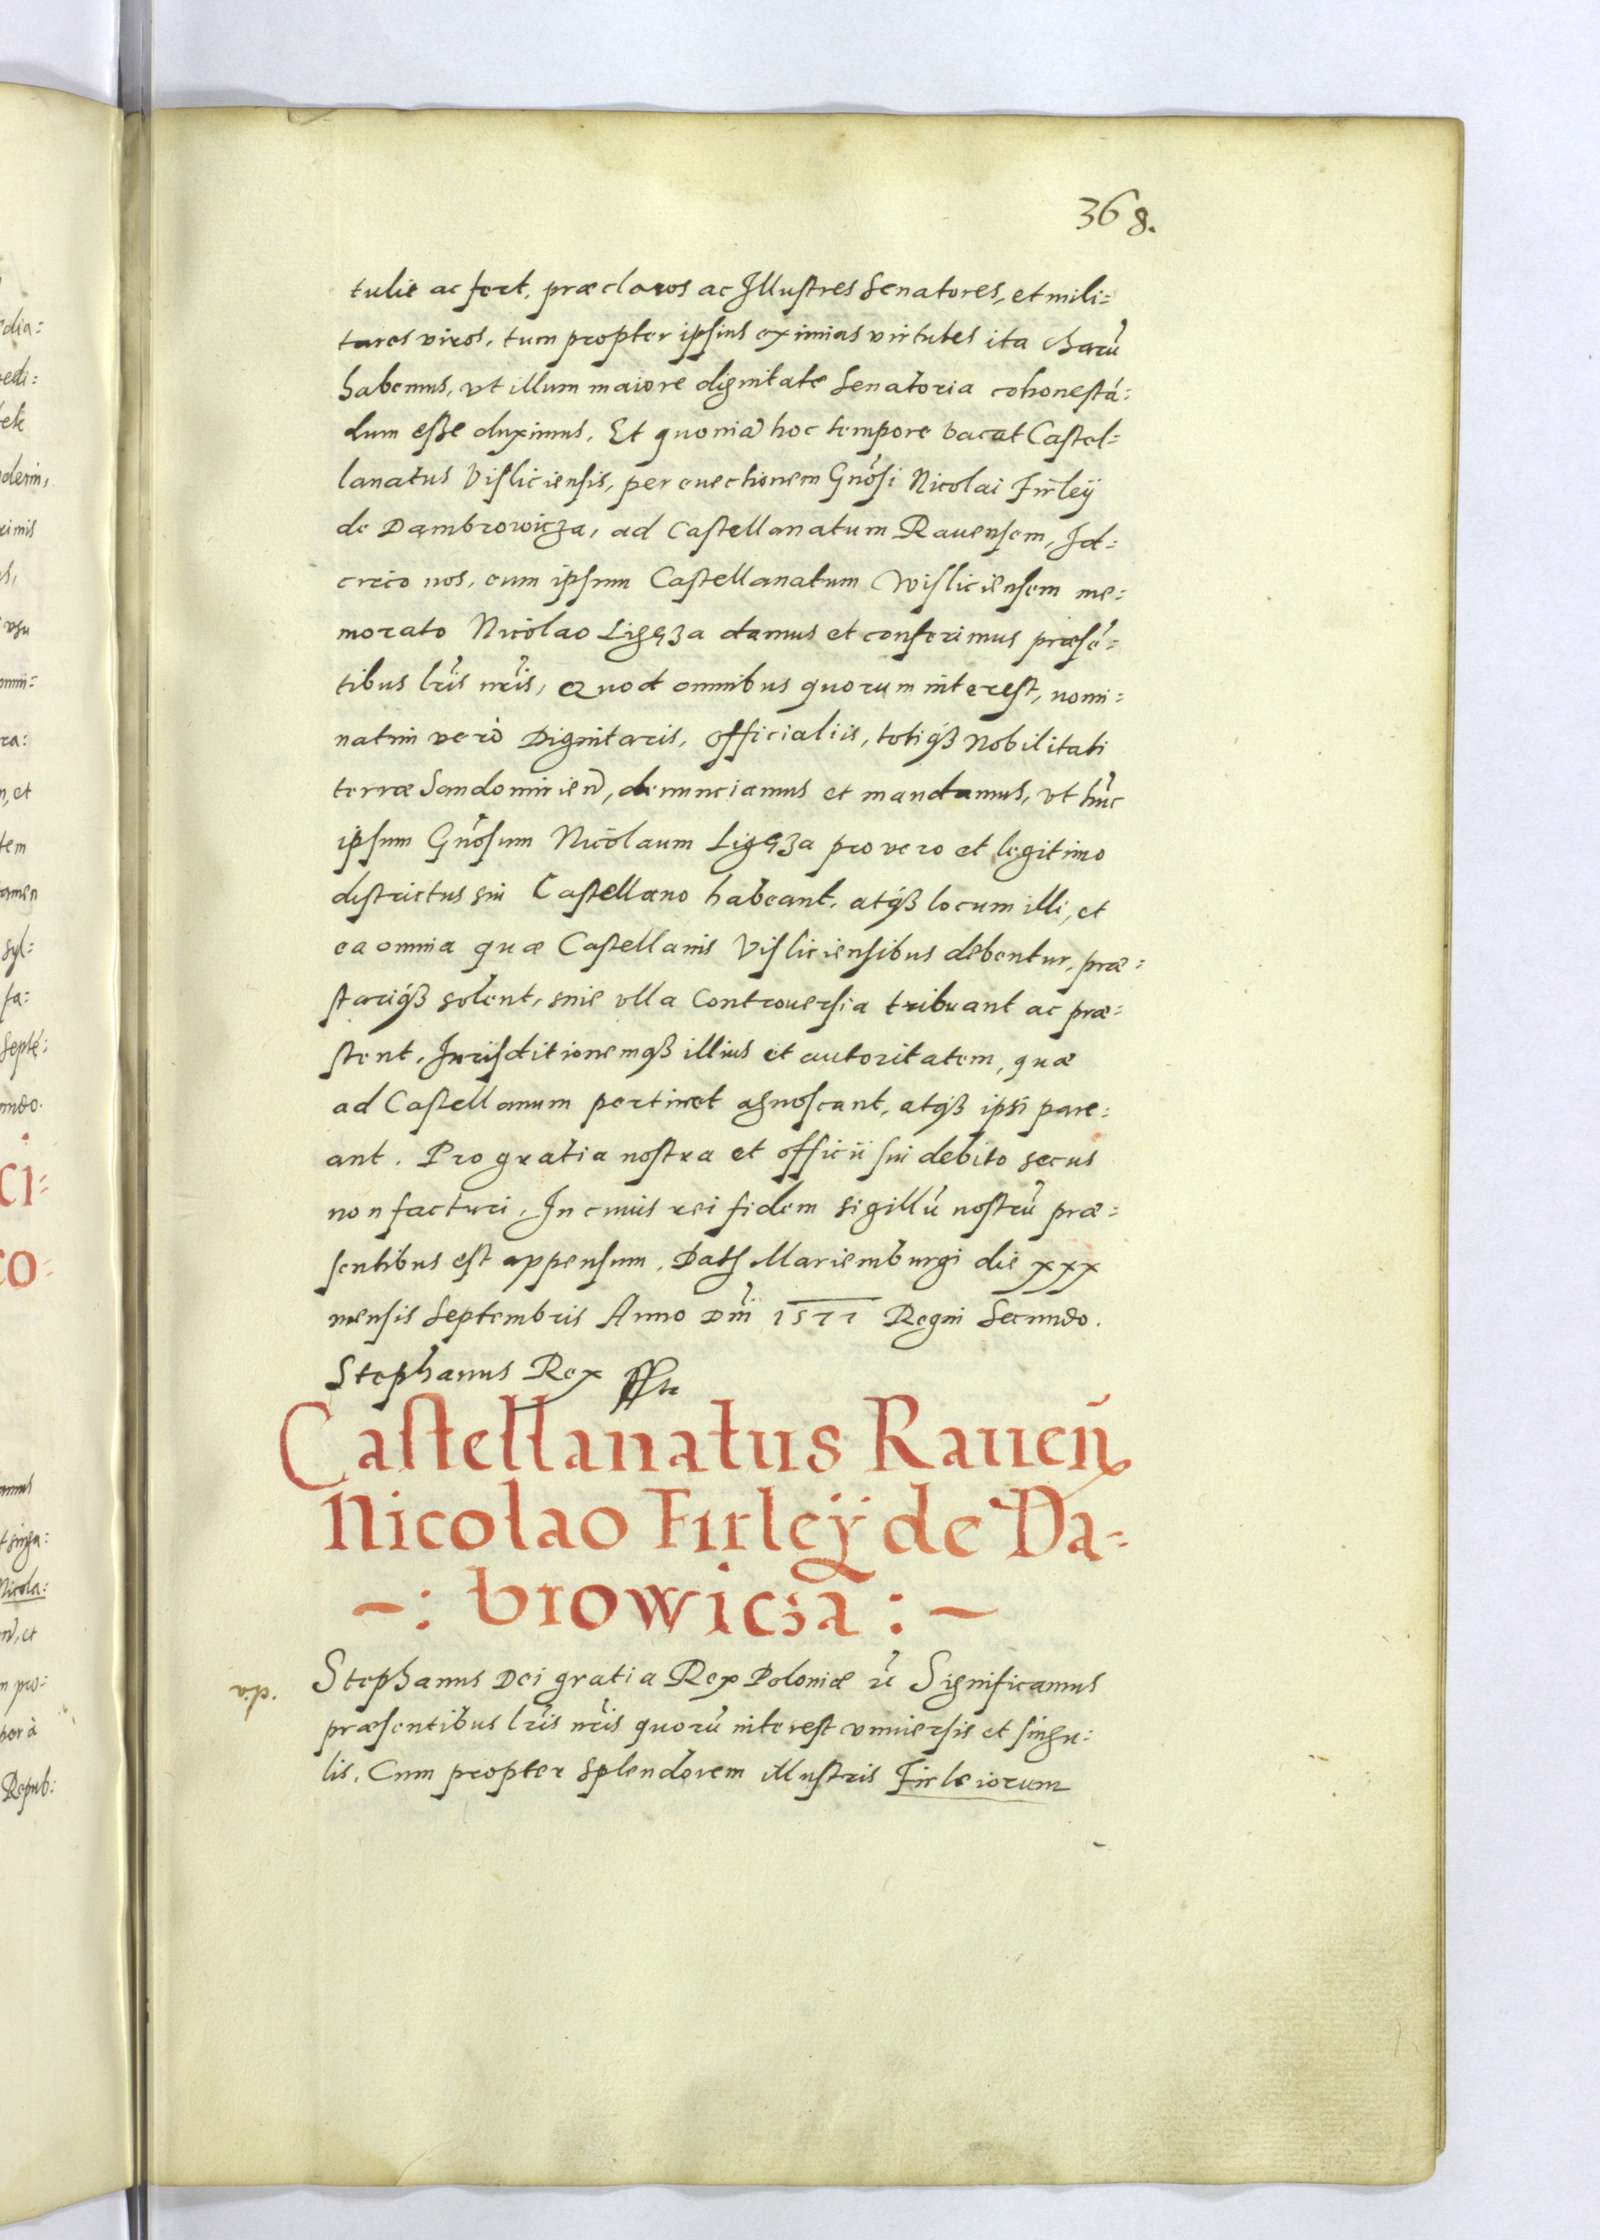 368.
tulit ac fert, præclaros ac Illustres Senatores, et mili=
tares viros, tum propter ipsius eximias virtutes ita charũ
habemus, vt illum maiore dignitate Senatoria cohonestã=
dum esse duximus. Et quoniã hoc tempore vacat Castel=
lanatus Visliciensis, per euectionem Gnõsi Nicolai Firleÿ
de Dambrowicza, ad Castellanatum Rauensem, Id=
circo nos, eum ipsum Castellanatum Wisliciensem me=
morato Nicolao Ligęza damus et conferimus præsẽ=
tibus lr̃is nr̃is, Quod omnibus quorum interest, nomi=
natim verò Dignitaris, officialiis, totiqꝫ Nobilitati
terræ Sandomirieñ, denunciamus et mandamus, vt hũc
ipsum Gnõsum Nicolaum Ligęza pro vero et legitimo
districtus sui Castellano habeant, atqꝫ locum illi, et
ea omnia quæ Castellanis Visliciensibus debentur, præ=
stariqꝫ solent, sine vlla Controuersia tribuant ac præ=
stent, Jurisditionemqꝫ illius et autoritatem, quæ
ad Castellanum pertinet agnoscant, atqꝫ ipsi pare=
ant. Pro gratia nostra et officii sui debito secus
non facturi. In cuius rei fidem sigillũ nostrũ præ=
sentibus est appensum. Datꝭ Mariemburgi die xxx
mensis Septembris Anno Dñi 1577 Regni Secundo.
Stephanus Rex
Castellanatus Raueñ
Nicolao Firleÿ de Da=
~: browicza :~
Stephanus Dei gratia Rex Poloniæ ꝛc̃ Significamus
præsentibus lr̃is nr̃is quorũ interest vniuersis et singu=
lis. Cum propter splendorem illustris Firleiorum